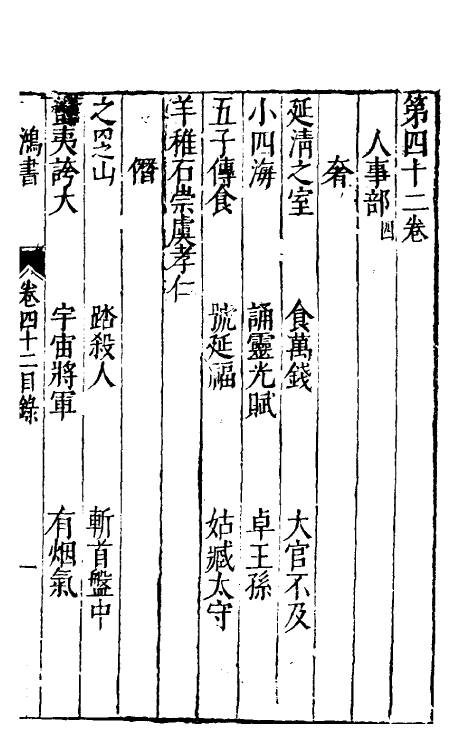 第四十二卷
人事部四
奢
延清之室　食萬錢　大官不及
小四海　誦靈光賦　卓王孫
五子傳食　號延福　姑臧太守
羊稚石崇虞孝仁
僭
之罘山　踏殺人　斬首盤中
夷誇大　宇宙將軍　有烟氣
鴻書　卷四十二目錄　一